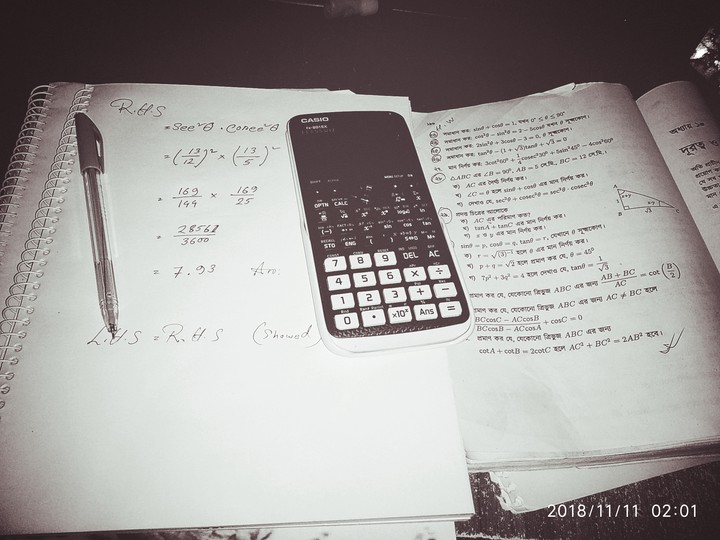 R.H.S
= Sec²θ . Cosec²θ
= (13/12)² × (13/5)²
= 169/144 × 169/25
= 28561/3600
= 7.93 Ans.
L.H.S = R.H.S (Showed)
CASIO
OPTN CALC
(-)
sin cos tan
STO ENG ( ) S⇔D M+
7 8 9 DEL AC
4 5 6 × ÷
1 2 3 + −
0 . ×10ˣ Ans =
সমাধান কর: sinθ + cosθ = 1, যখন 0° ≤ θ ≤ 90°
সমাধান কর: cos²θ − sin²θ = 2 − 5cosθ যখন θ সূক্ষ্মকোণ।
সমাধান কর: 2sin²θ + 3cosθ − 3 = 0, θ সূক্ষ্মকোণ।
সমাধান কর: tan²θ − (1 + √3)tanθ + √3 = 0
মান নির্ণয় কর: 3cot²60° + 1/4 cosec²30° + 5sin²45° − 4cos²60°
△ABC এর ∠B = 90°, AB = 5 সে.মি., BC = 12 সে.মি.।
ক) AC এর দৈর্ঘ্য নির্ণয় কর।
খ) ∠C = θ হলে sinθ + cosθ এর মান নির্ণয় কর।
গ) দেখাও যে, sec²θ + cosec²θ = sec²θ · cosec²θ
প্রদত্ত চিত্রের আলোকে
ক) AC এর পরিমাণ কত?
খ) tanA + tanC এর মান নির্ণয় কর।
গ) x ও y এর মান নির্ণয় কর।
A
B √3 C
sinθ = p, cosθ = q, tanθ = r, যেখানে θ সূক্ষ্মকোণ।
ক) r = √(3)⁻¹ হলে θ এর মান নির্ণয় কর।
খ) p + q = √2 হলে প্রমাণ কর যে, θ = 45°
গ) 7p² + 3q² = 4 হলে দেখাও যে, tanθ = 1/√3
প্রমাণ কর যে, যেকোনো ত্রিভুজ ABC এর জন্য (AB + BC)/AC = cot(B/2)
প্রমাণ কর যে, যেকোনো ত্রিভুজ ABC এর জন্য AC ≠ BC হলে
(BCcosC − ACcosB)/(BCcosB − ACcosA) + cosC = 0
প্রমাণ কর যে, যেকোনো ত্রিভুজ ABC এর জন্য
cotA + cotB = 2cotC হলে AC² + BC² = 2AB² হবে।
2018/11/11 02:01